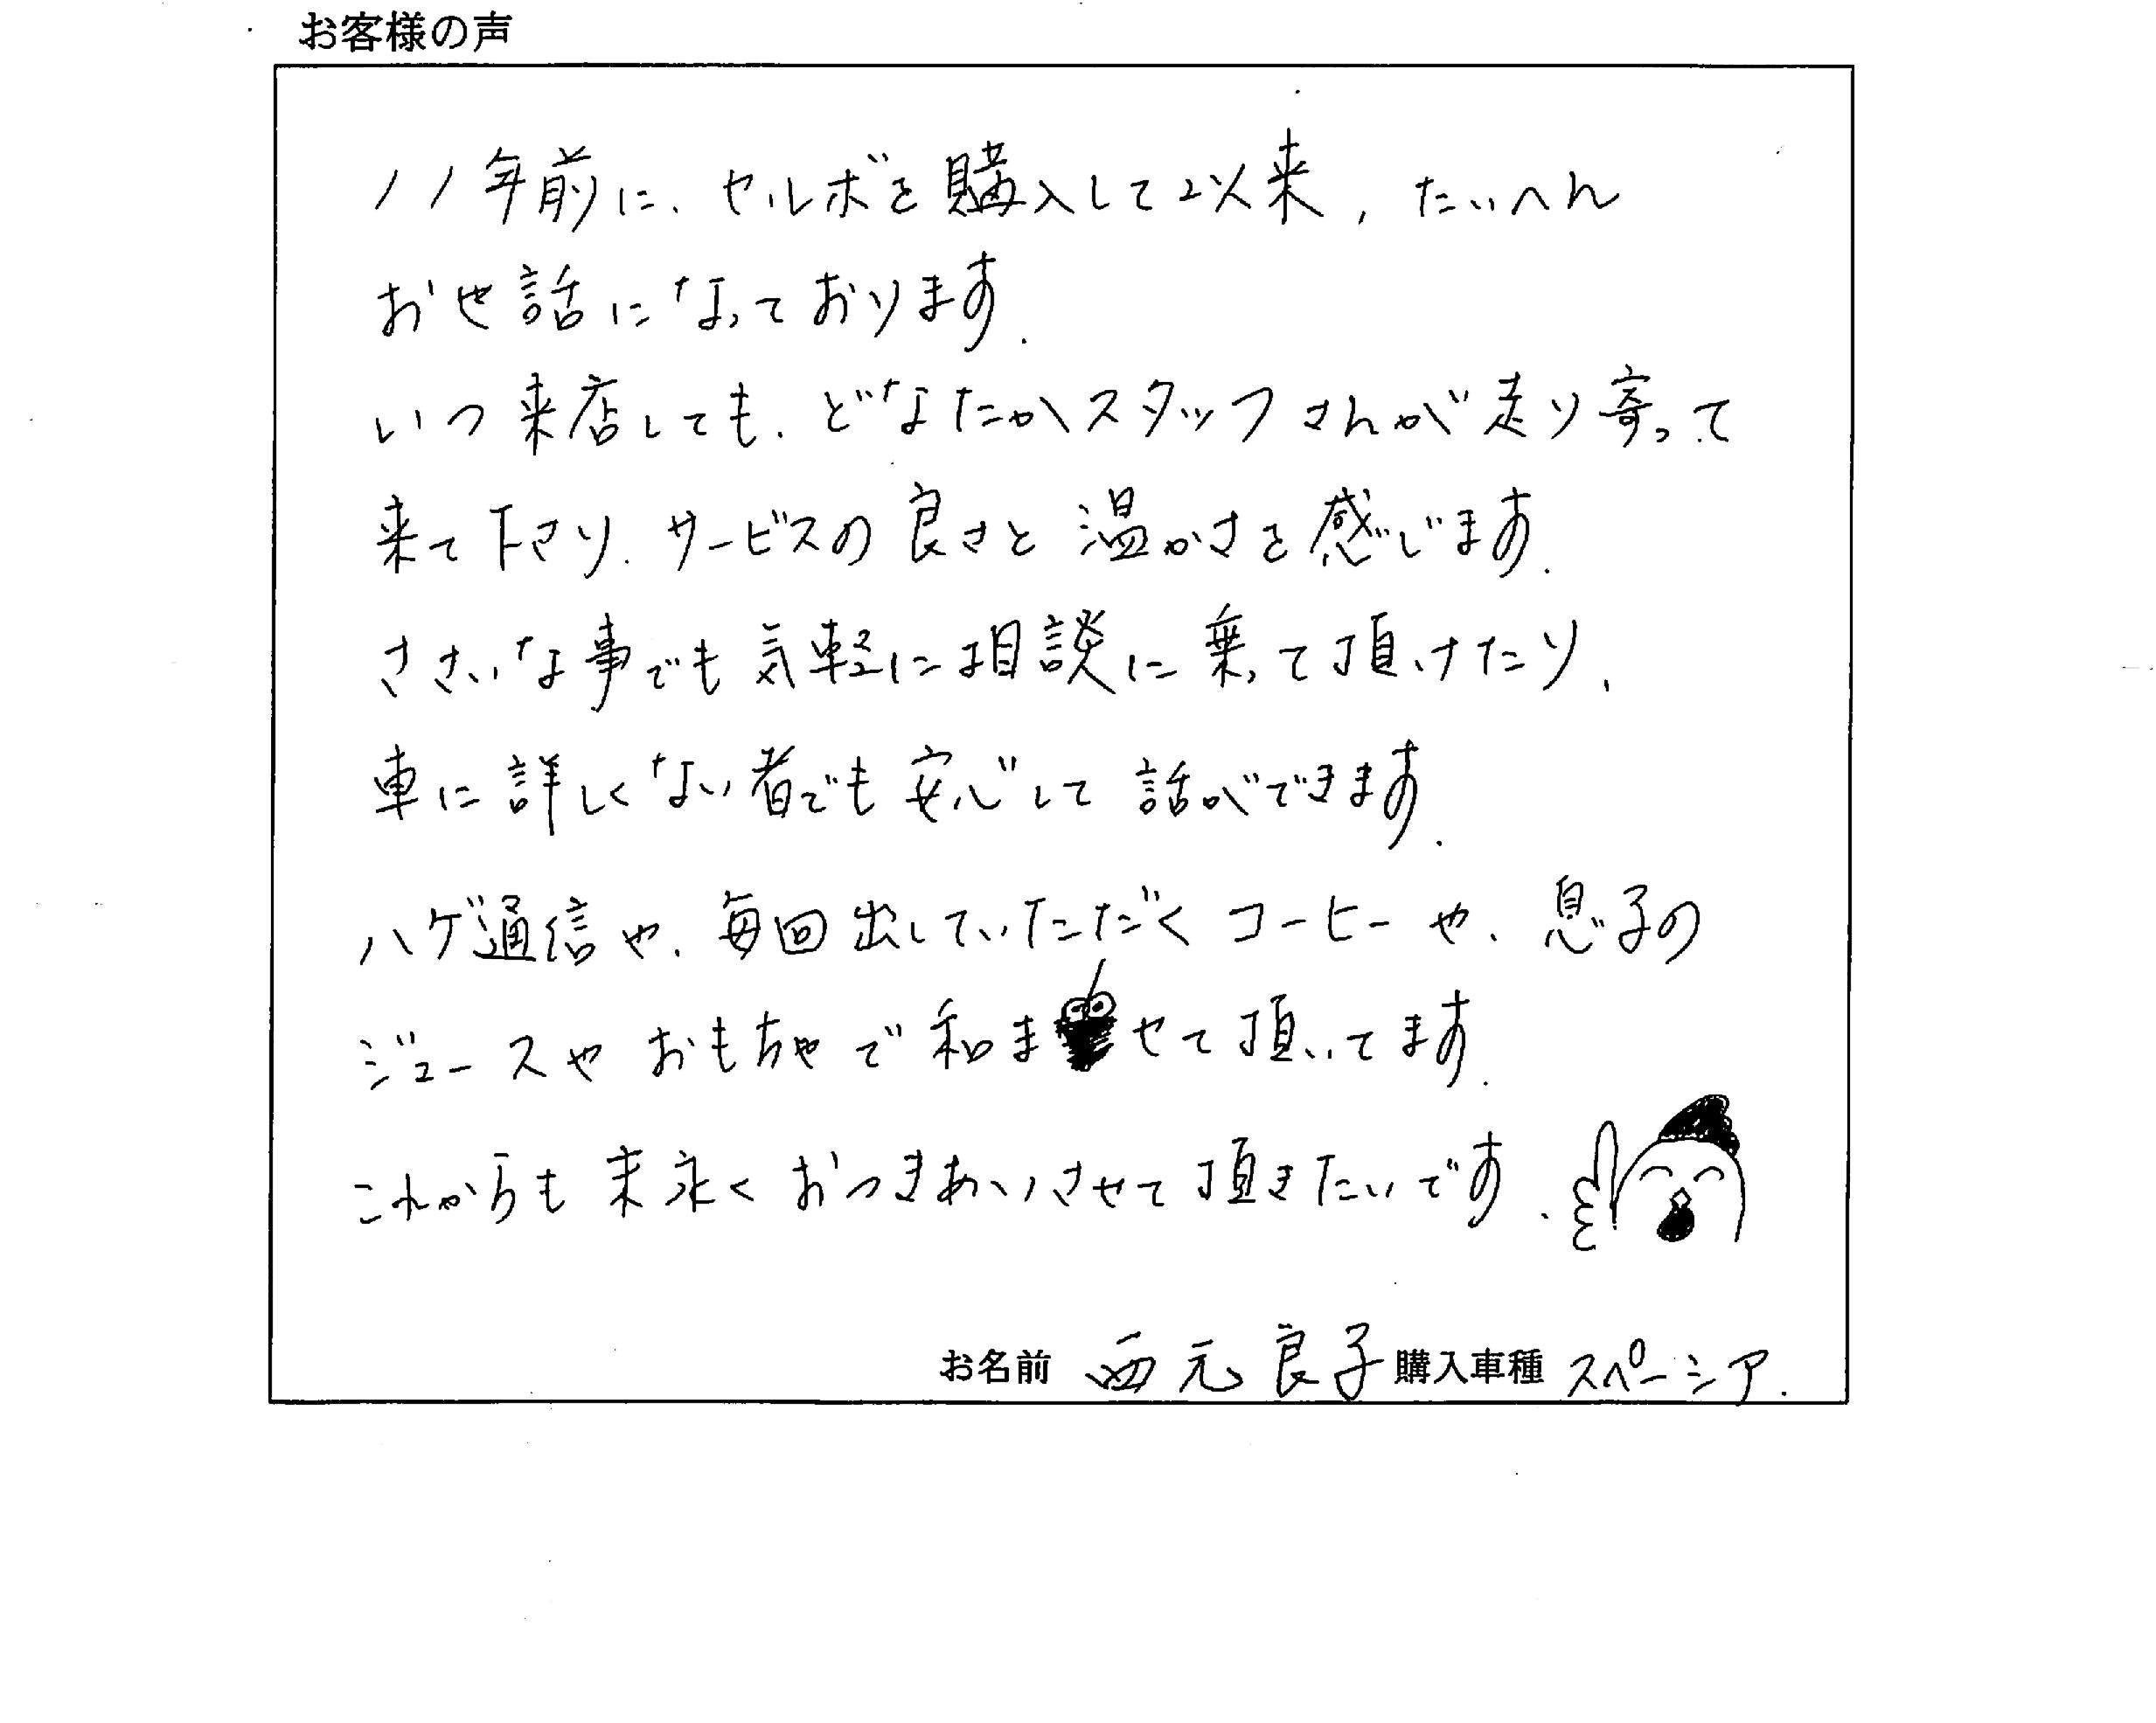 お客様の声
11年前に、セルボを購入して以来、たいへん
お世話になっております。
いつ来店しても、どなたかスタッフさんが走り寄って
来て下さり、サービスの良さと温かさを感じます。
ささいな事でも気軽に相談に乗って頂けたり、
車に詳しくない者でも安心して話ができます。
ハゲ通信や、毎回出していただくコーヒーや、息子の
ジュースやおもちゃで和ませて頂いてます。
これからも末永くおつきあいさせて頂きたいです。
お名前 西元 良子 購入車種 スペーシア.